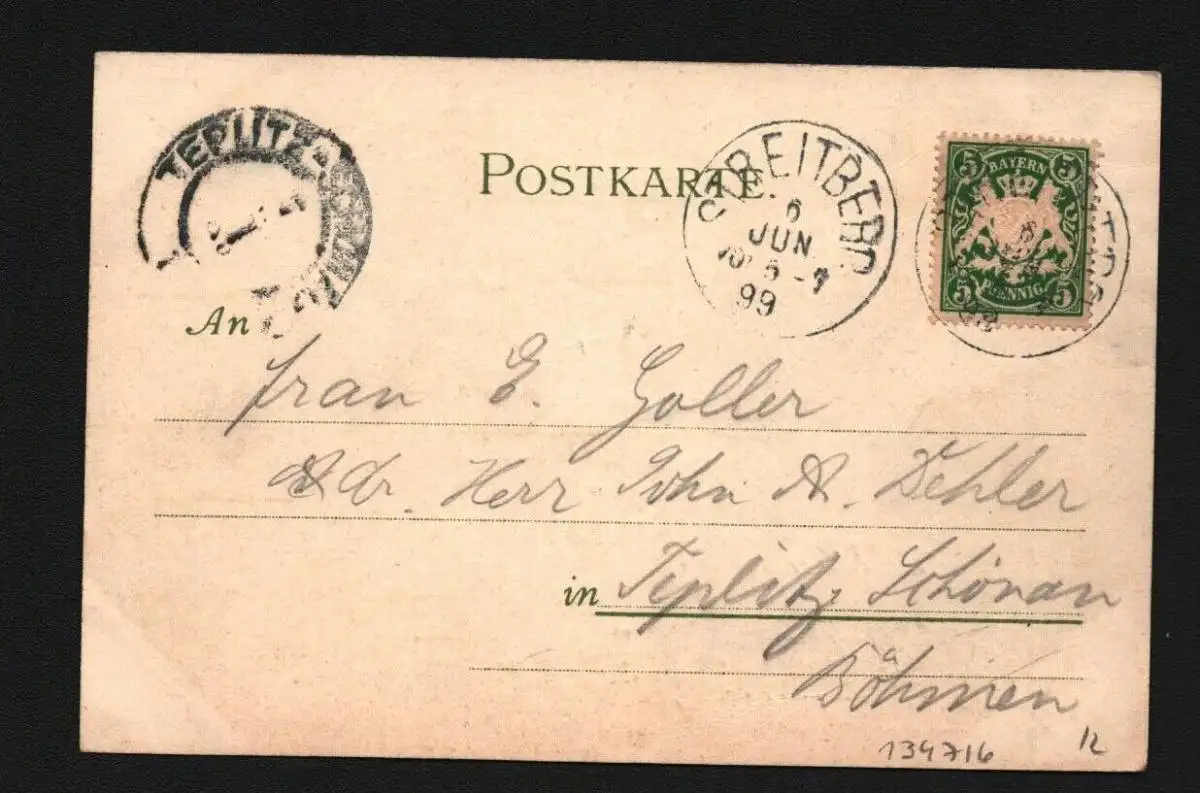 TEPLITZ
POSTKARTE.
STREITBERG
6
JUN
99
5 BAYERN 5
5 PFENNIG 5
An
Frau E. Goller
Adr. Herr John A. Dehler
in Teplitz Schönau
Böhmen
134716 12